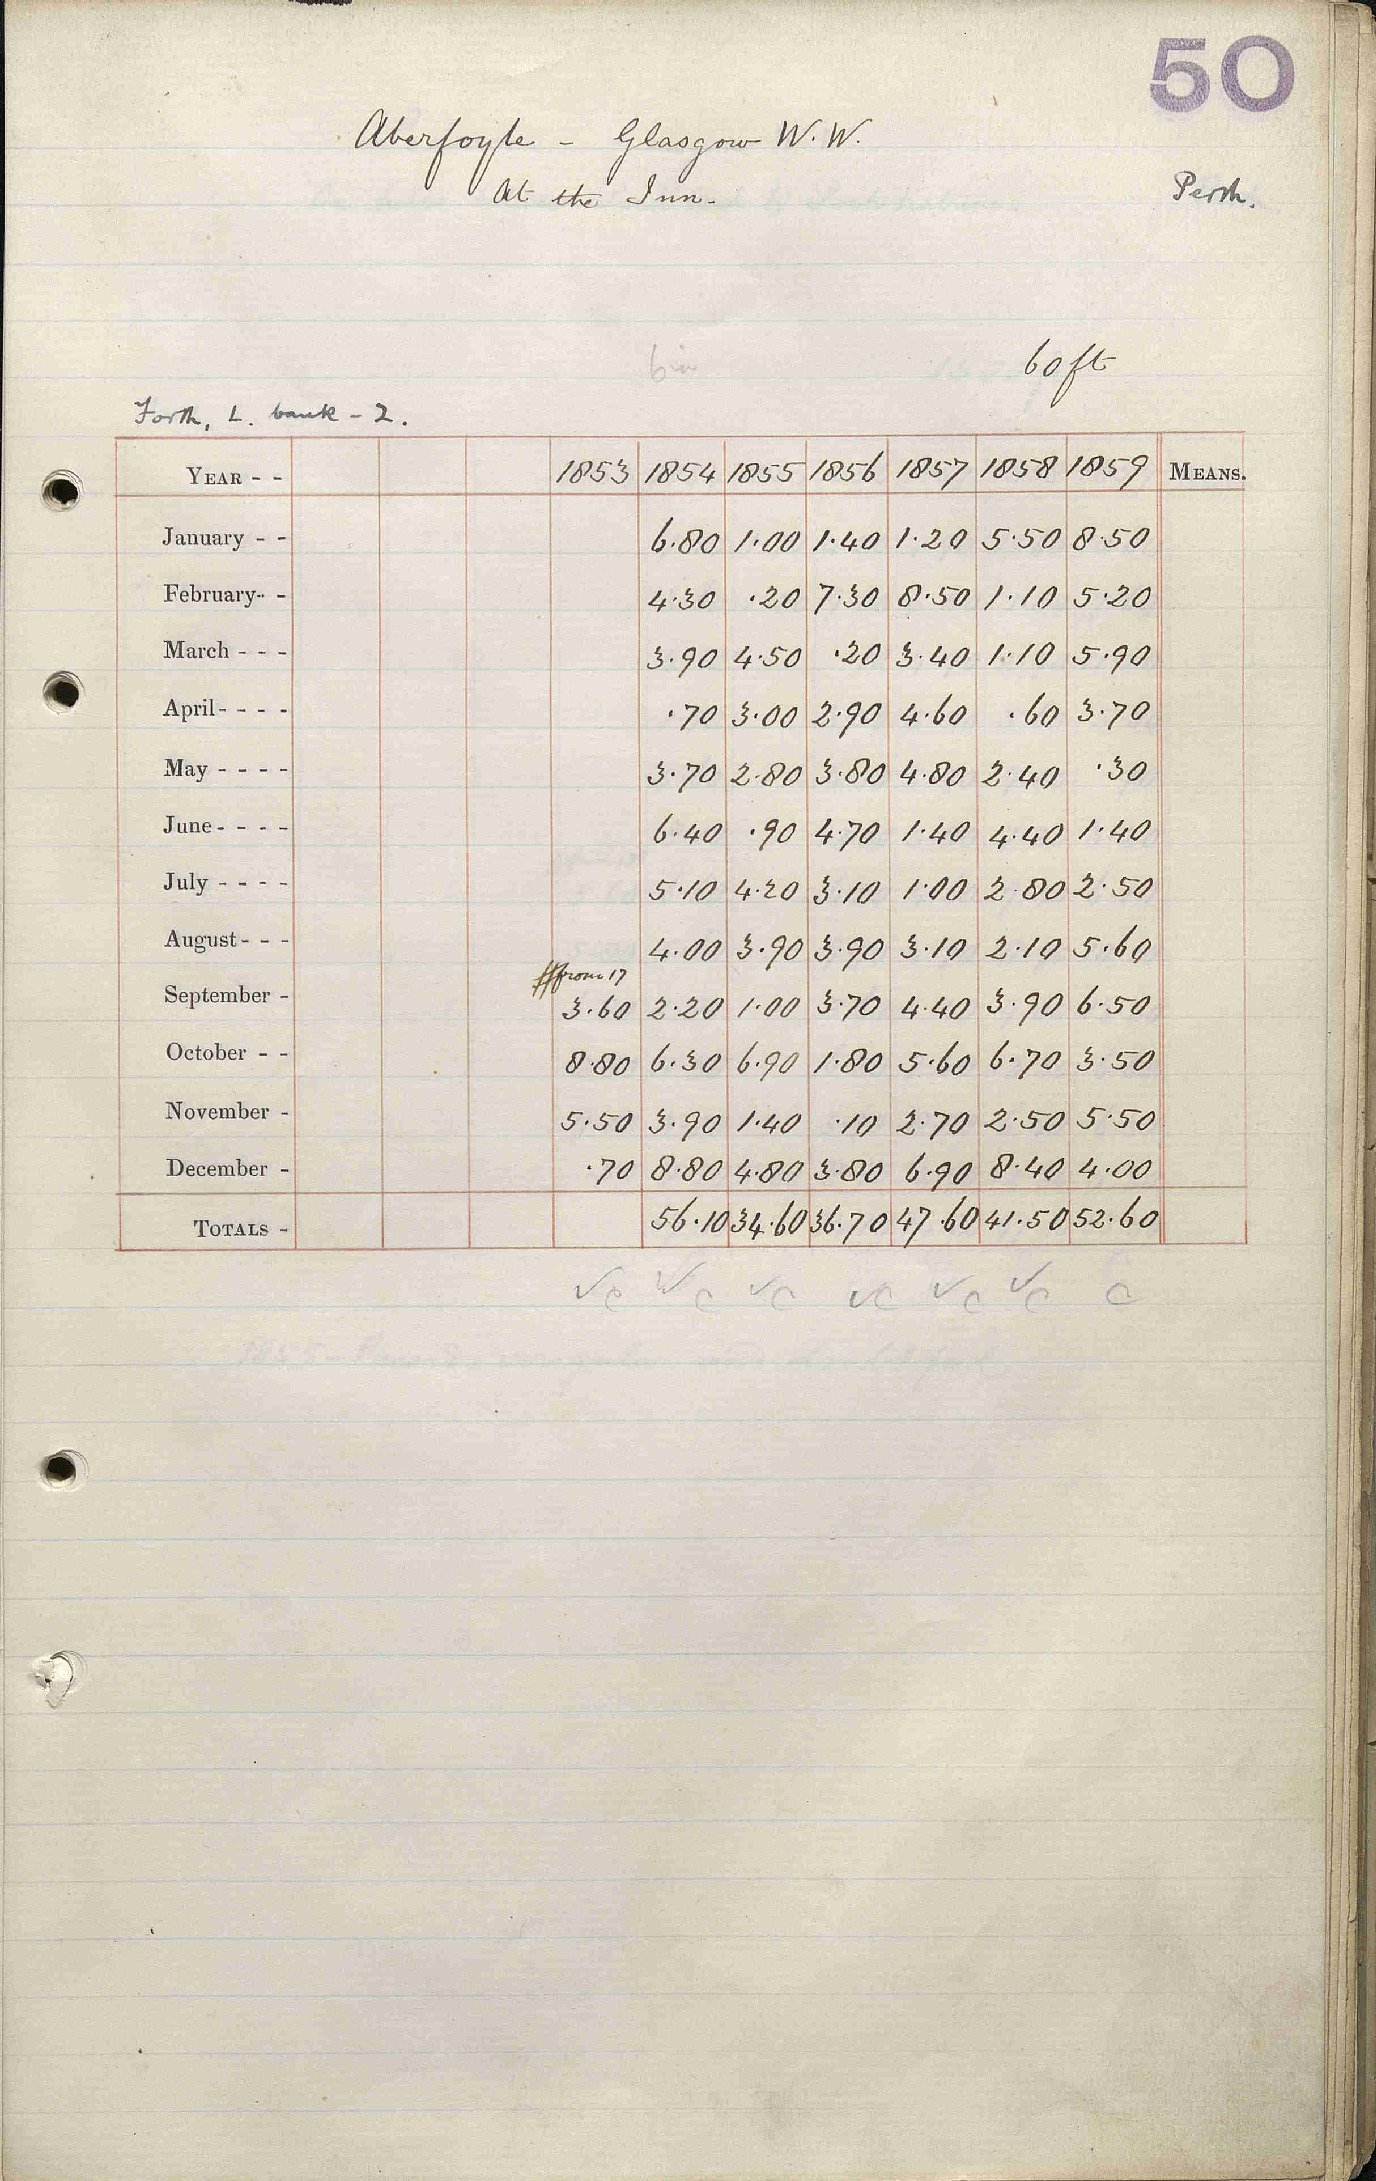 50
Aberfoyle - Glasgow W.W.
At the Inn.
Perth.
6 in
60 ft
Forth, L. bank - 2.
YEAR - - 1853 1854 1855 1856 1857 1858 1859 MEANS.
January - - 6.80 1.00 1.40 1.20 5.50 8.50
February - - 4.30 .20 7.30 8.50 1.10 5.20
March - - - 3.90 4.50 .20 3.40 1.10 5.90
April - - - - .70 3.00 2.90 4.60 .60 3.70
May - - - - 3.70 2.80 3.80 4.80 2.40 .30
June - - - - 6.40 .90 4.70 1.40 4.40 1.40
July - - - - 5.10 4.20 3.10 1.00 2.80 2.50
August - - - 4.00 3.90 3.90 3.10 2.10 5.60
from 17
September - 3.60 2.20 1.00 3.70 4.40 3.90 6.50
October - - 8.80 6.30 6.90 1.80 5.60 6.70 3.50
November - 5.50 3.90 1.40 .10 2.70 2.50 5.50
December - .70 8.80 4.80 3.80 6.90 8.40 4.00
TOTALS - 56.10 34.60 36.70 47.60 41.50 52.60
✓c ✓c ✓c ✓c ✓c ✓c c